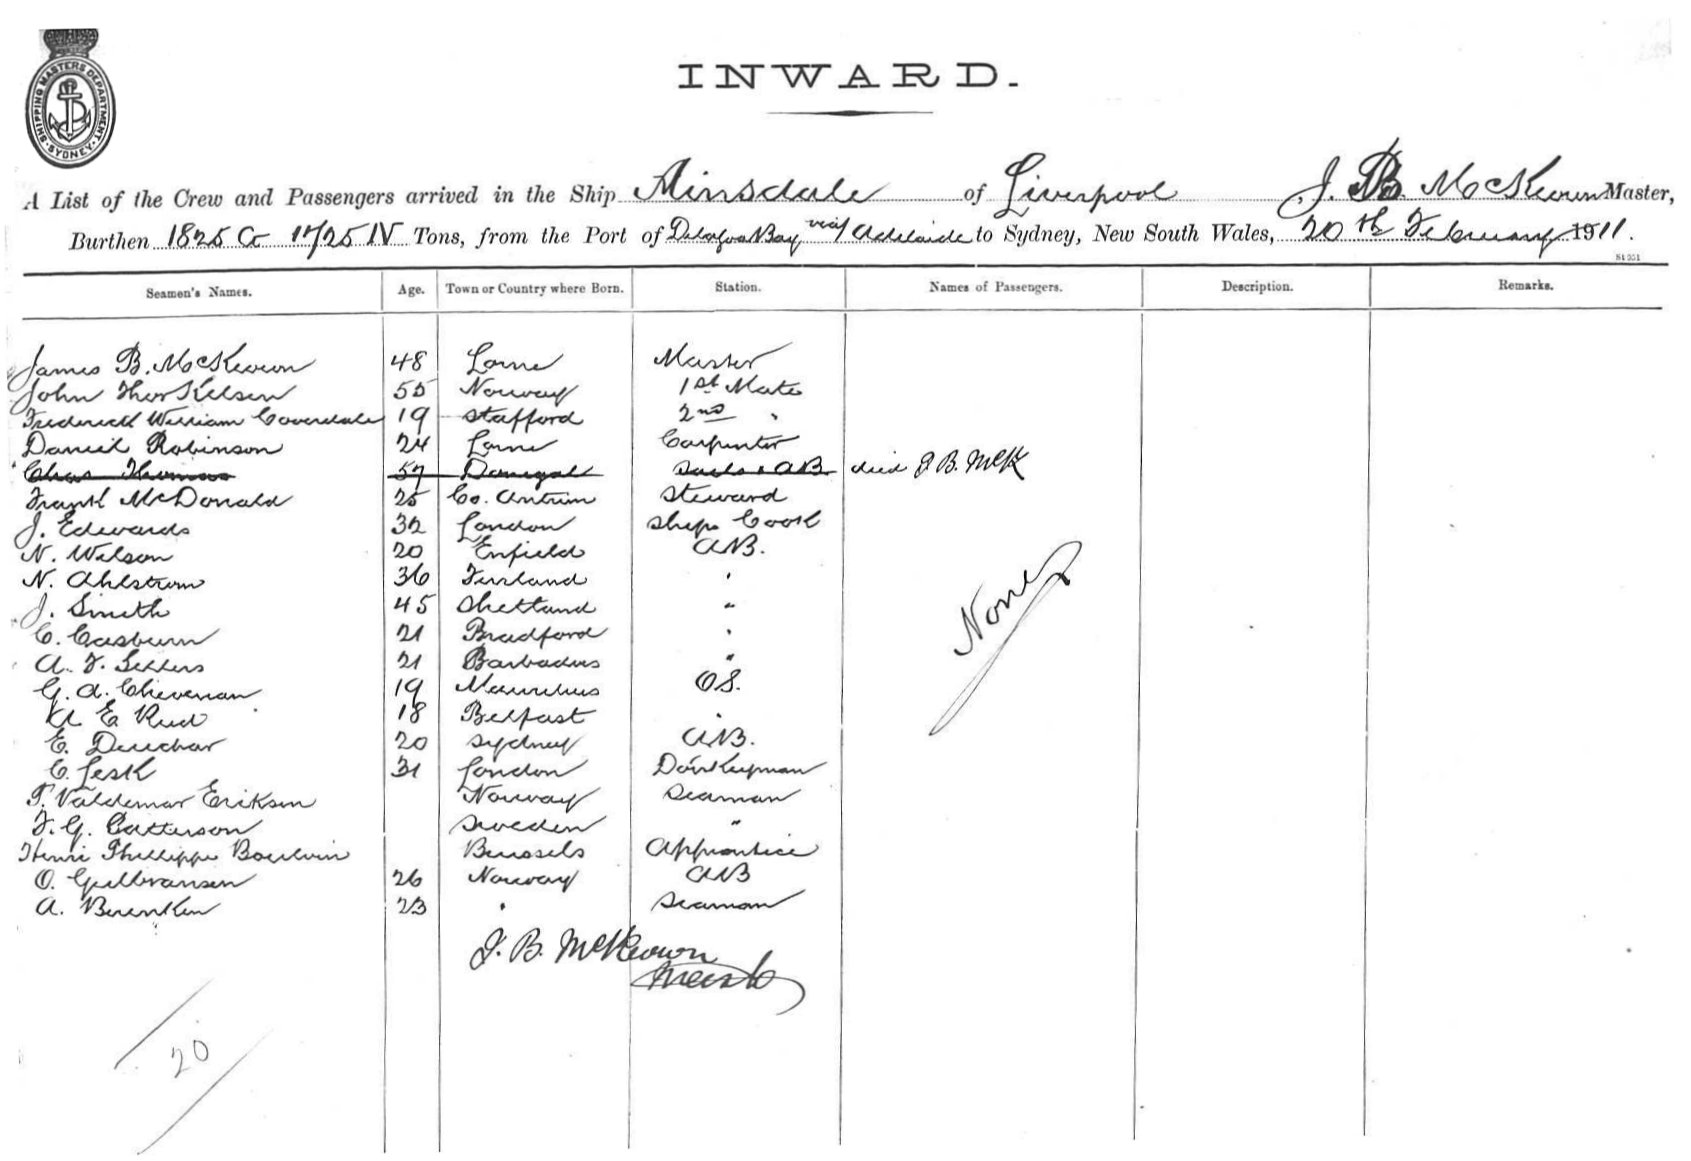 SHIPPING MASTERS DEPARTMENT. SYDNEY.
INWARD.
A List of the Crew and Passengers arrived in the Ship Ainsdale of Liverpool J. B. McKeown Master,
Burthen 1825 G 1725 N Tons, from the Port of Delagoa Bay via Adelaide to Sydney, New South Wales, 20th February 1911.
Seamen's Names. Age. Town or Country where Born. Station. Names of Passengers. Description. Remarks.
James B. McKeown 48 Larne Master
John Thorkelsen 55 Norway 1st Mate
Frederick William Coverdale 19 Stafford 2nd "
Daniel Robinson 24 Larne Carpenter
Chas Thomas 57 Donegal Sails & AB died J B. McK
Frank McDonald 25 Co. Antrim Steward
J. Edwards 32 London Ships Cook
N. Wilson 20 Enfield AB.
N. Ahlstrom 36 Finland "
J. Smith 45 Shetland "
C. Casburn 21 Bradford "
A. F. Sellers 21 Barbados "
G. A. 19 Mauritius OS.
A E Reid 18 Belfast "
E. Deuchar 20 Sydney AB.
C. Jesk 31 London Donkeyman
T. Valdemar Eriksen Norway Seaman
F. G. Catterson Sweden "
Henri Phillippe Brussels Apprentice
O. Gulbransen 26 Norway AB
A. 23 " Seaman
None
J. B. McKeown
Master
20